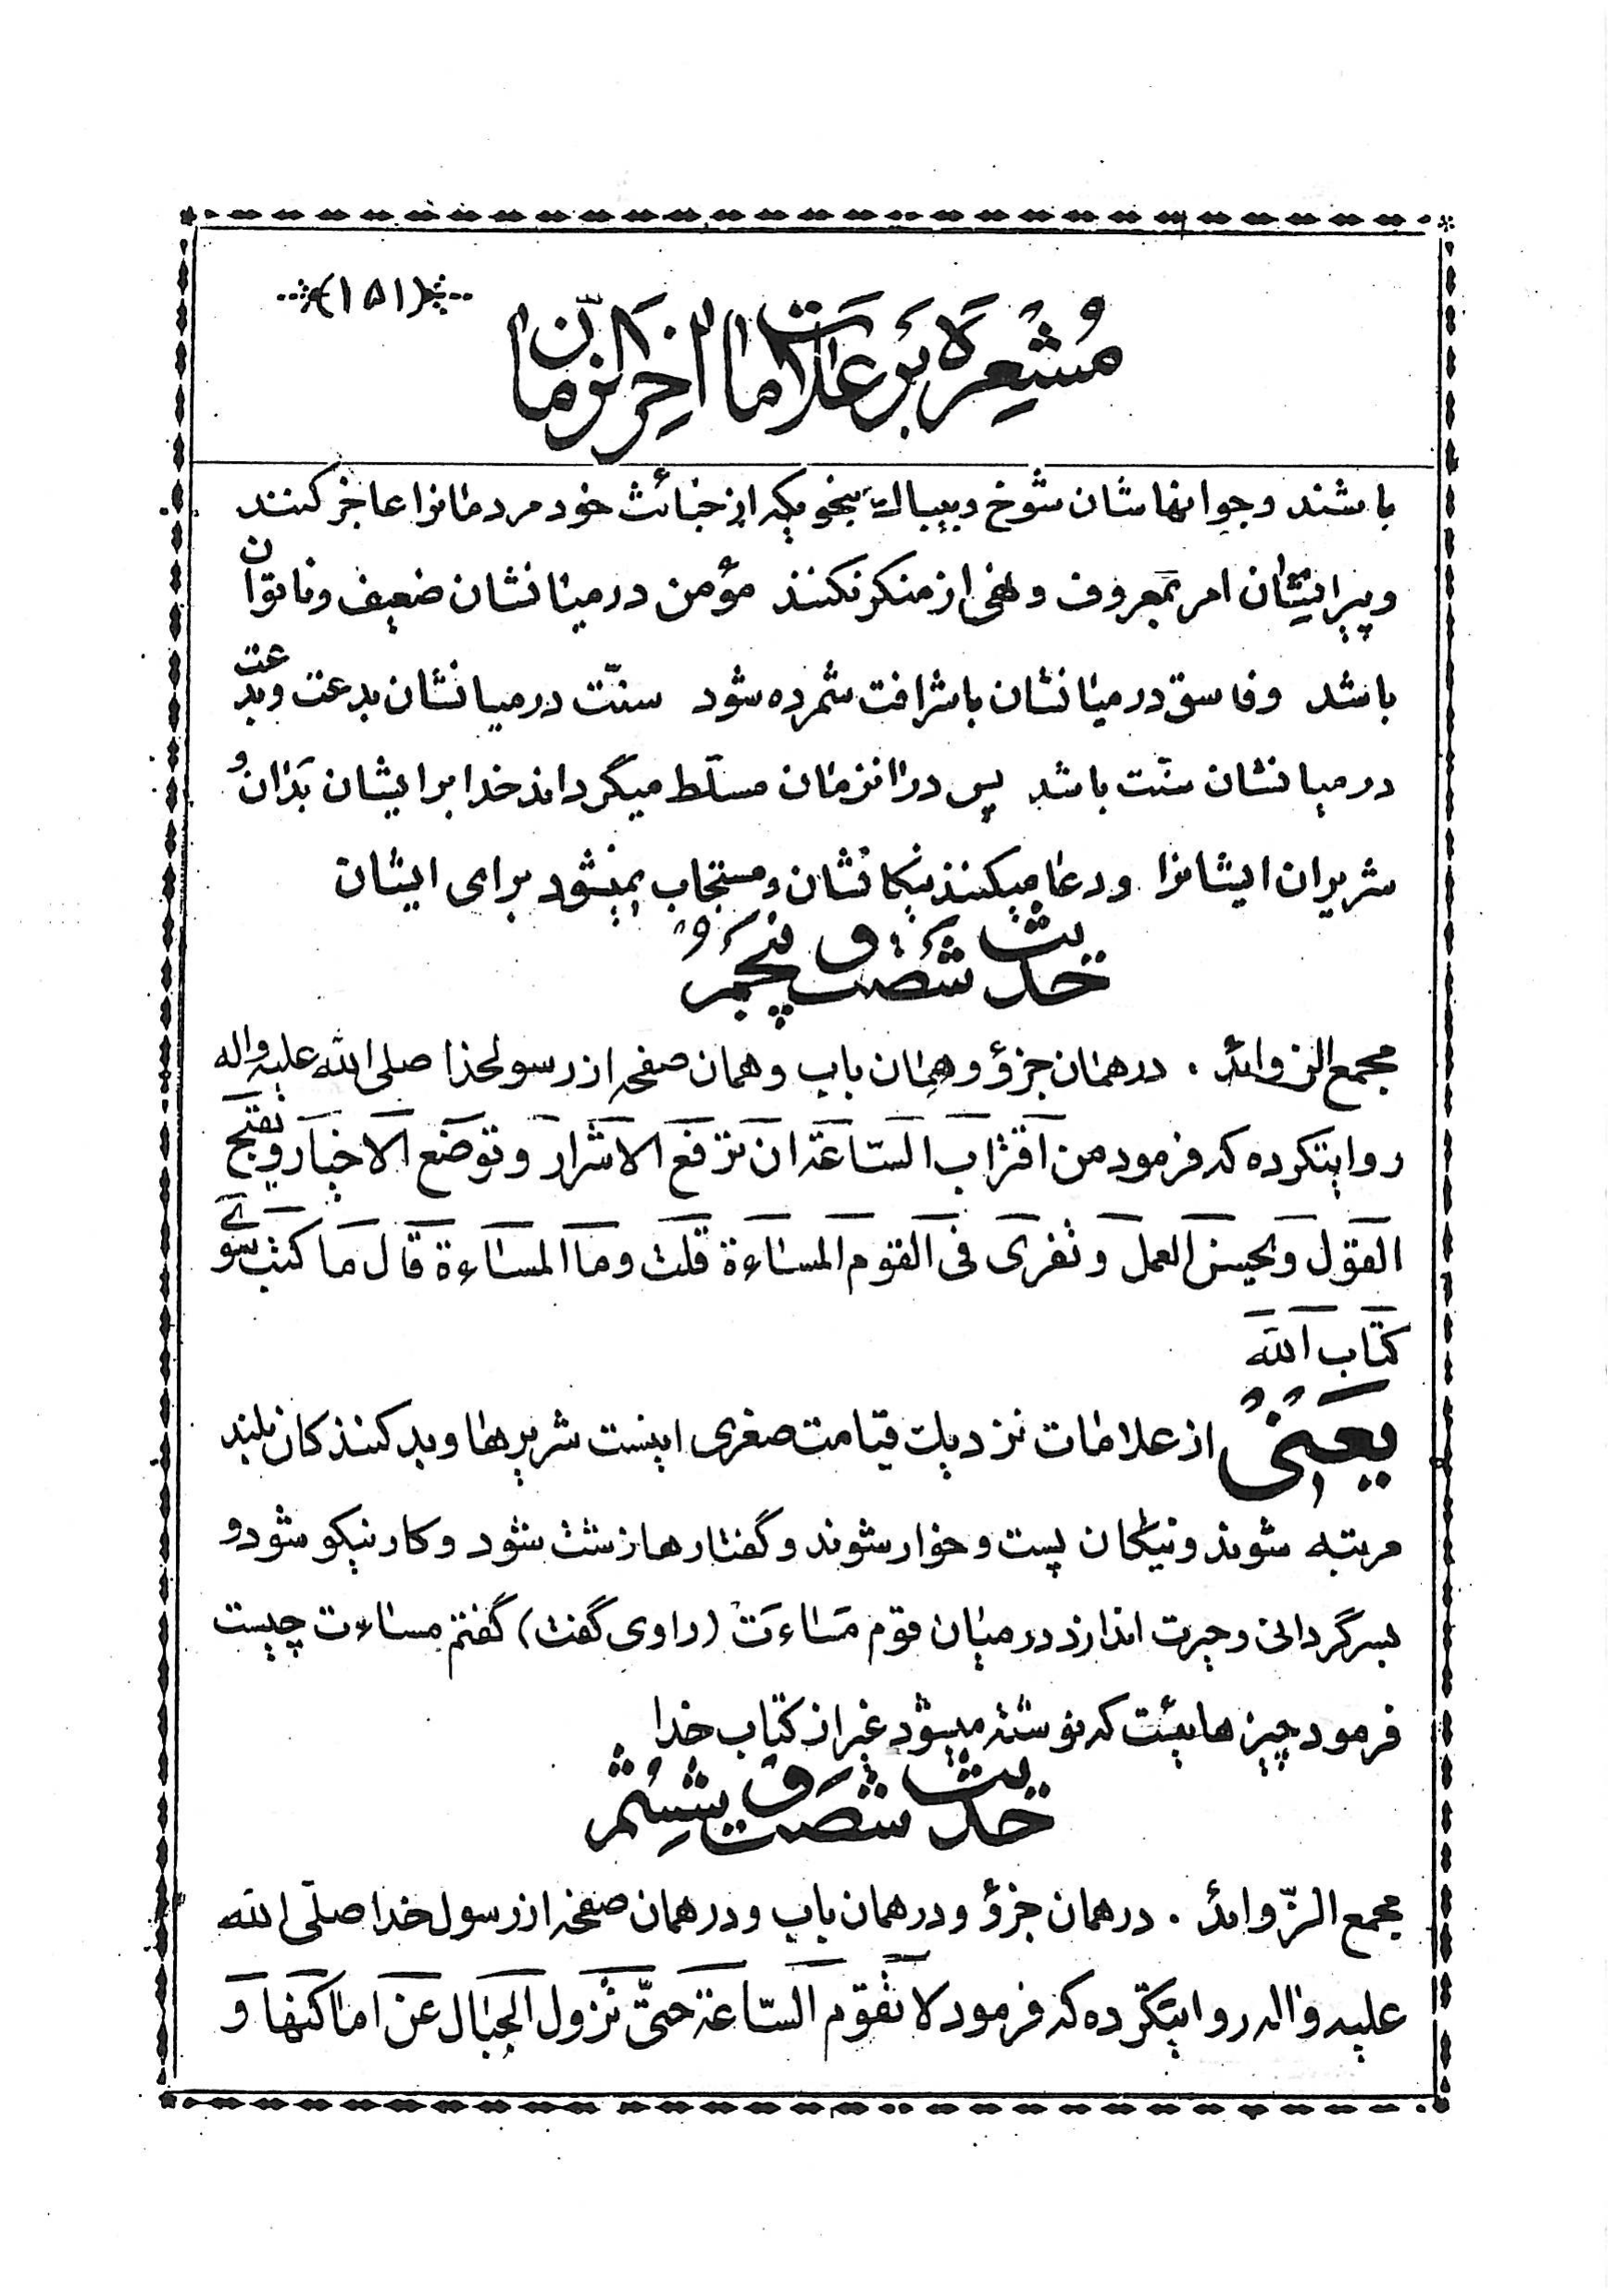 (۱۵۱)
مُشعِرَه بَر عَلاماتِ اخِرَالزَّمان
باشند و جوانهاشان شوخ و بیباک بنحویکه از خباثت خود مردمانرا عاجز کنند
و پیرانشان امر بمعروف و نهی از منکر نکنند مؤمن در میانشان ضعیف و ناتوان
باشد و فاسق در میانشان باشرافت شمرده شود سنّت در میانشان بدعت و بدعت
در میانشان سنّت باشد پس در انزمان مسلّط میگرداند خدا برایشان بَدان و
شریران ایشانرا و دعا میکنند نیکانشان و مستجاب نمیشود برای ایشان
حَدیث شَصتُ و پنجُم
مجمع الزوائد . در همان جزؤ و همان باب و همان صفحه از رسولخدا صلی الله علیه واله
روایتکرده که فرمود من اقتراب السّاعة ان ترفع الاشرار و توضع الاخیار و یقبح
القول و یحسن العمل و تغری فی القوم المساءة قلت و ما المساءة قال ما کتب سوی
کتاب الله
یَعنی از علامات نزدیک قیامت صغری اینست شریرها و بد کنندکان بلند
مرتبه شوند و نیکان پست و خوار شوند و گفتارها زشت شود و کار نیکو شود و
بسرگردانی و حیرت اندازد در میان قوم مَساءَت (راوی گفت) گفتم مساءت چیست
فرمود چیزهائیست که نوشته میشود غیر از کتاب خدا
حَدیث شَصتُ و شِشُم
مجمع الزّوائد . در همان جزؤ و در همان باب و در همان صفحه از رسول خدا صلّی الله
علیه واله روایتکرده که فرمود لا تقوم السّاعة حتّی تزول الجبال عن اماکنها وَ